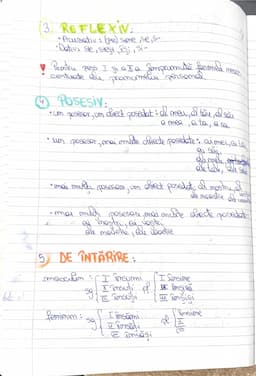 3. REFLEXIV:
• Acuzativ: (pe) sine, se, s-
• Dativ: sie, sieși, își, și-
! Pentru pers I și a II a împrumută formele
pronumelui personal.
4. POSESIV:
• un posesor, un obiect posedat: al meu, al tău, al său
a mea, a ta, a sa
• un posesor, mai multe obiecte posedate: ai mei, ai tăi
ai săi
ale mele
ale tale, ale sale
• mai mulți posesori, un obiect posedat: al nostru, al
a noastră
• mai mulți posesori, mai multe obiecte posedate:
ai noștri, ai voștri
ale noastre, ale voastre
5. DE ÎNTĂRIRE:
masculin: sg I însumi pl I înșine
II însuți II înșivă
III însuși III înșiși
feminin: sg I însămi pl I însene
II însăți II
III însăși III